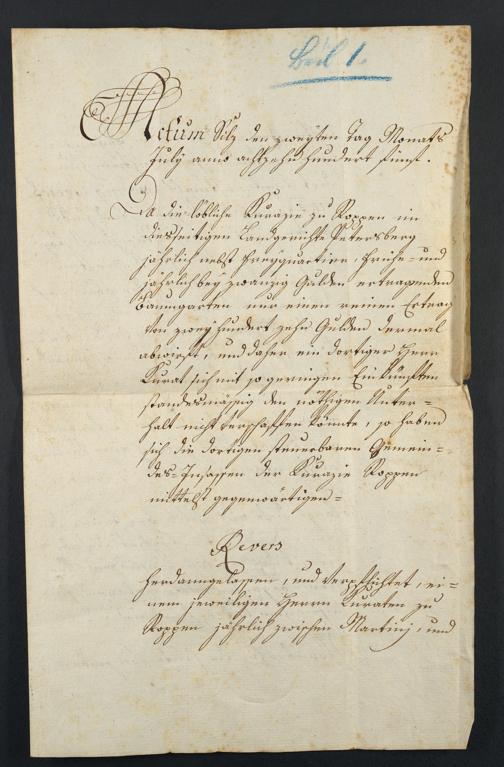 Beil 1.
Actum Silz den zweyten Tag Monats
July anno achtzehnhundert fünf.
Da die löbliche Kurazie zu Roppen im
diesseitigen Landgerichte Petersberg
jährlich nebst Freyquartier, Frühe- und
jährlich bey zwanzig Gulden ertragenden
Baumgarten nur einen reinen Ertrag
von zwey hundert zehn Gulden dermal
abwirft, und daher ein dortiger Herr
Kurat sich mit so geringen Einkünften
standesmässig den nöthigen Unter-
halt nicht verschaffen könnte, so haben
sich die dortigen steuerbaren Gemein-
des-Insassen der Kurazie Roppen
mittelst gegenwärtigen-
Revers
herdanngelassen, und verpflichtet, ei-
nem jeweiligen Herrn Kuraten zu
Roppen jährlich zwischen Martini, und